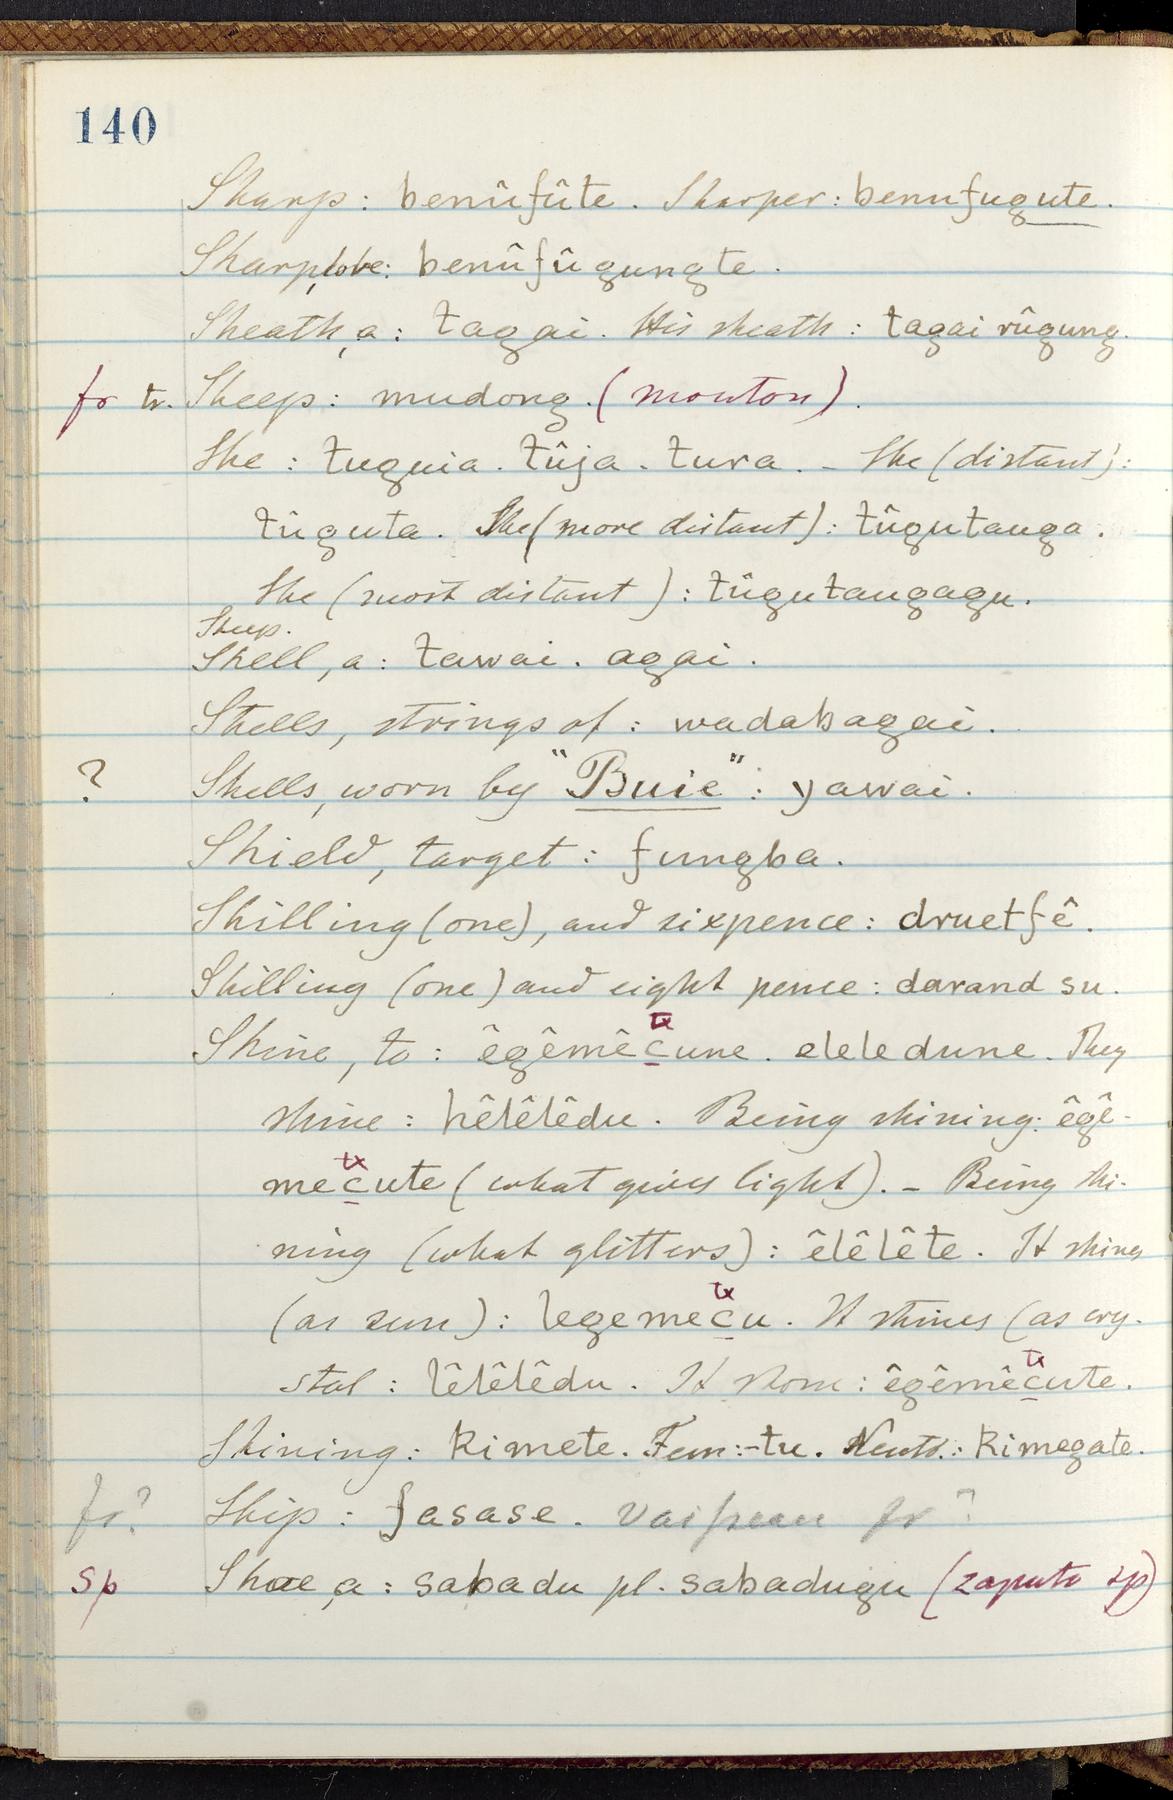 140
Sharp: benûfûte. Sharper: benufugute.
Sharp, to be: benûfûgungte.
Sheath, a: tagai. His sheath: tagai rûgung.
fr tr. Sheep: mudong. (mouton).
She: tuguia. tûja. tura. - She (distant):
tûguta. She (more distant): tûgutanga.
She (most distant): tûgutangagu.
Sheep.
Shell, a: tawai. agai.
Shells, strings of: wadabagai.
? Shells, worn by "Buie": yawai.
Shield, target: fungba.
Shilling (one), and sixpence: druetfê.
Shilling (one) and eight pence: darand su.
tx
Shine, to: êgêmêcune. eleledune. They
shine: hêlêlêdu. Being shining: êgê-
tx
mecute (what gives light). - Being shi-
ning (what glitters): êlêlête. It shines
tx
(as sun): legemecu. It shines (as cry-
tx
stal: lêlêlêdu. It shone: êgêmêcute.
Shining: kimete. Fem:-tu. Neutr.: kimegate.
fr? Ship: fasase. vaisseau fr?
sp Shoe, a: sabadu pl. sabadugu (zapato sp)